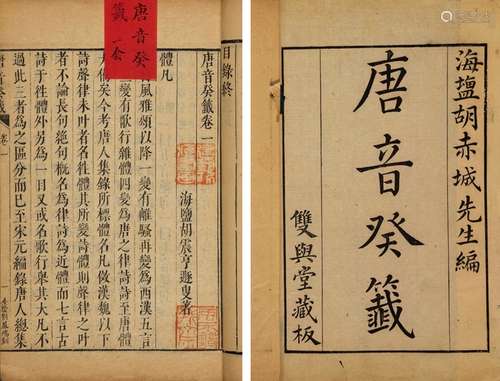 海鹽胡赤城先生編
唐音癸籤
雙與堂藏板
目錄終
唐音癸籤卷一
海鹽胡震亨遯叟著
體凡
風雅頌以降一變有離騷再變為西漢五言
變有歌行雜體四變為唐之律詩詩至唐體
大備矣今考唐人集錄所標體名凡倣漢魏以下
詩聲律未叶者名往體其所變詩體則聲律之叶
者不論長句絕句概名為律詩為近體而七言古
詩于往體外另為一目又或名歌行舉其大凡不
過此三者為之區分而已至宋元編錄唐人總集
卷一
唐音癸
籤